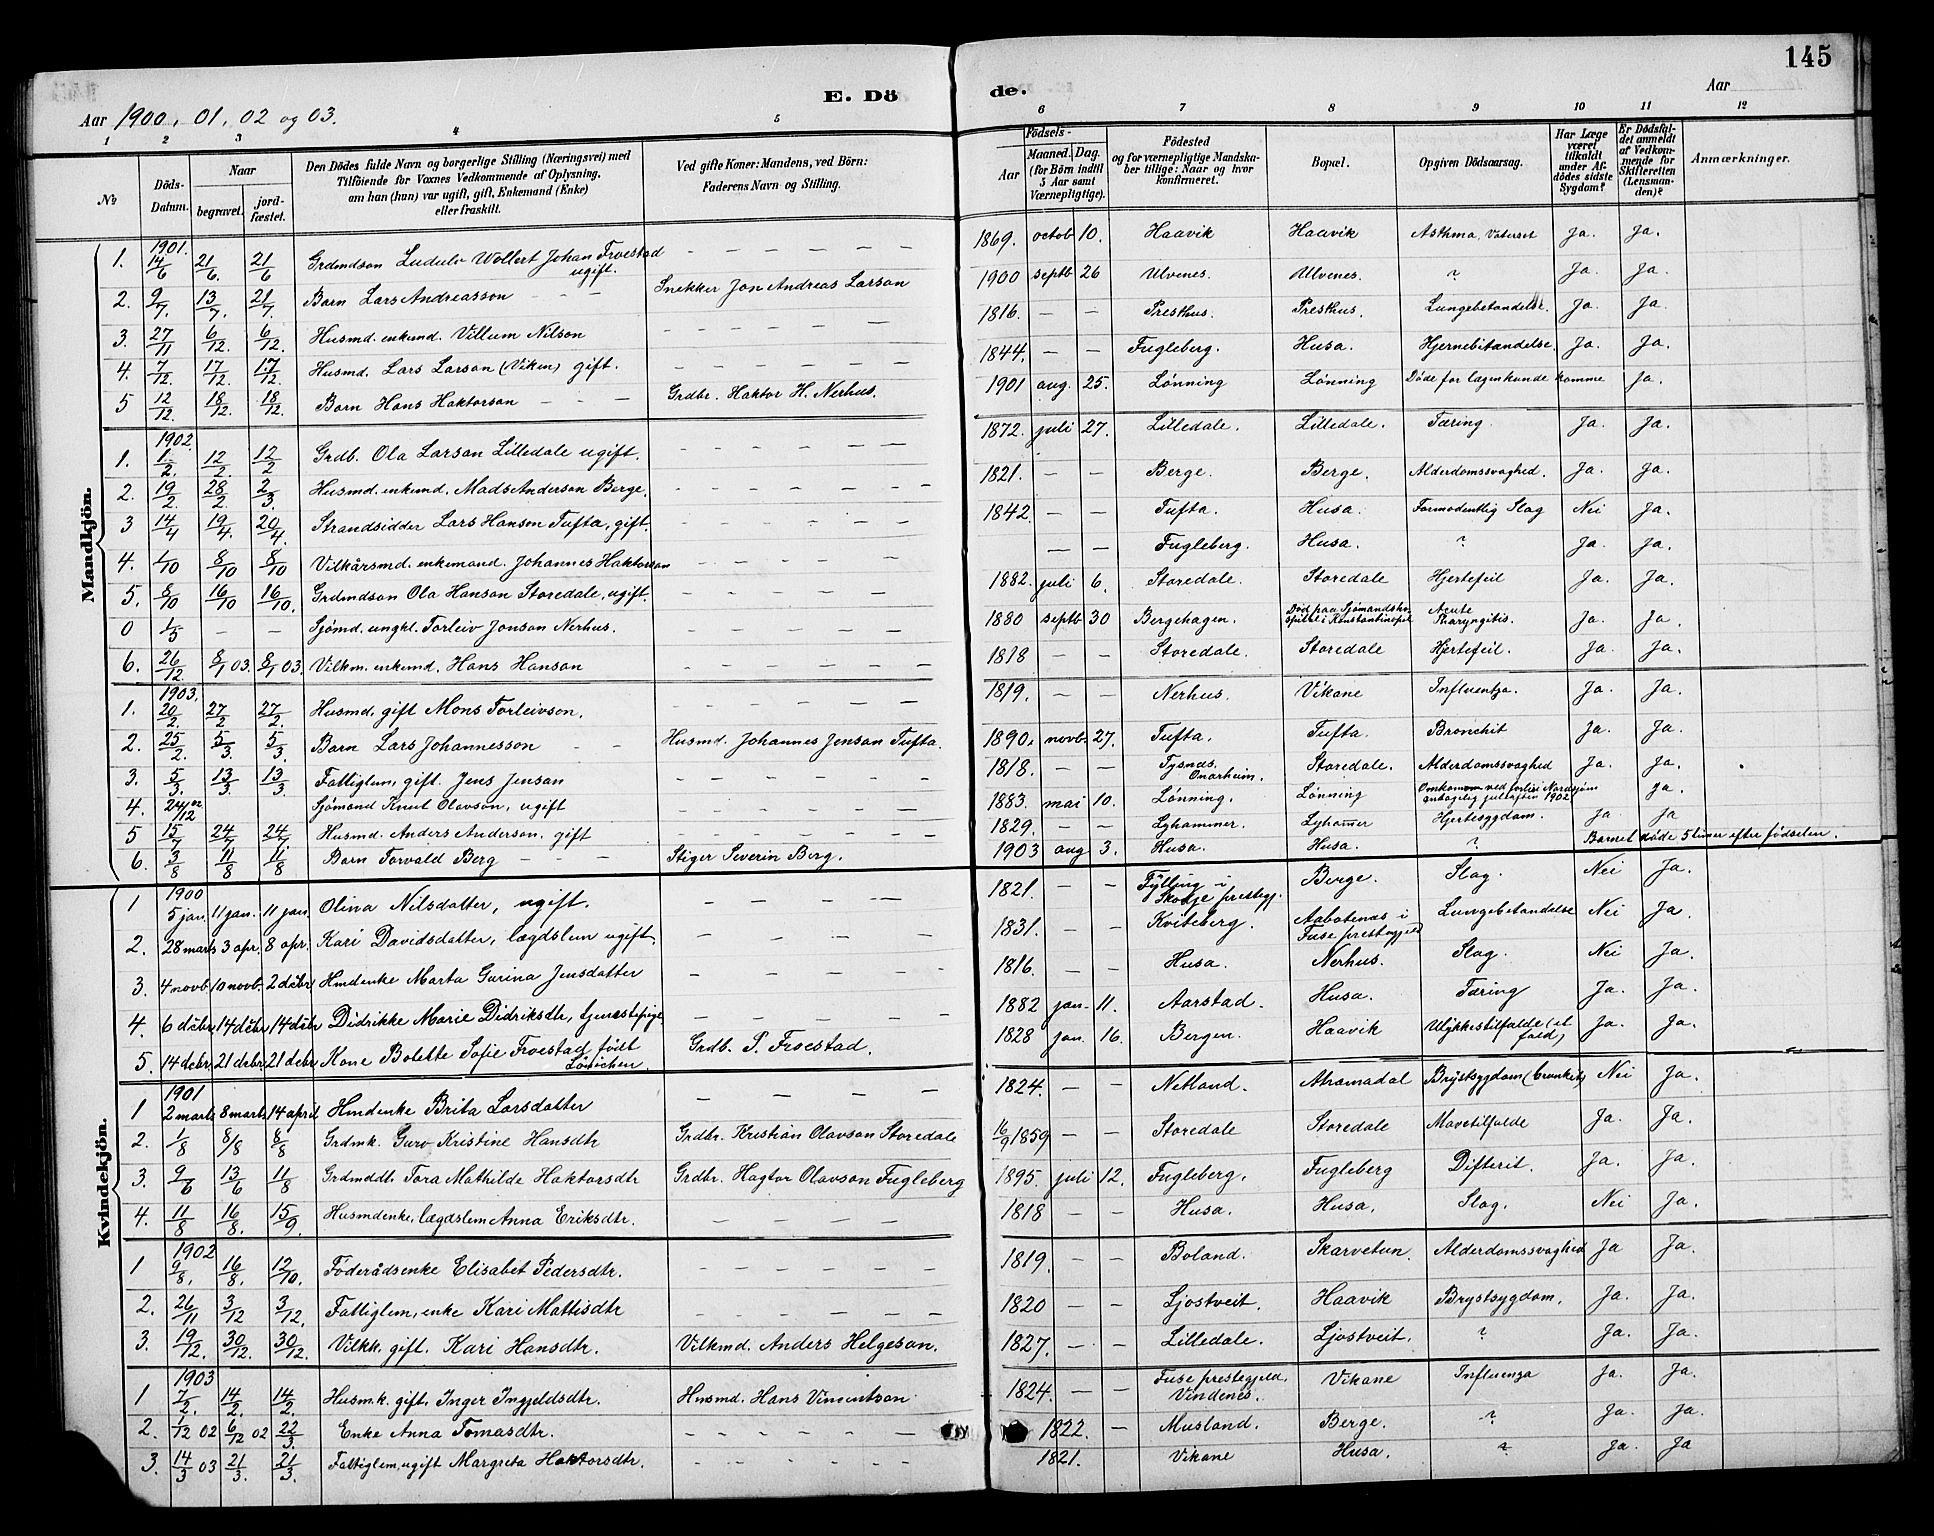 145
E. Dö de.
Aar 1900, 01, 02 og 03.
Aar
1 2 3 4 5 6 7 8 9 10 11 12
No
Döds-Datum.
Naar begravet. jordfæstet.
Den Dödes fulde Navn og borgerlige Stilling (Næringsvei) med Tilföiende for Voxnes Vedkommende af Oplysning, om han (hun) var ugift, gift, Enkemand (Enke) eller fraskilt.
Ved gifte Koner: Mandens, ved Börn: Faderens Navn og Stilling.
Födsels- Aar Maaned. Dag. (for Börn indtil 5 Aar samt Værnepligtige).
Födested og for værnepligtige Mandskaber tillige: Naar og hvor konfirmeret.
Bopæl.
Opgiven Dödsaarsag.
Har Læge været tilkaldt under Afdödes sidste Sygdom?
Er Dödsfaldet anmeldt af Vedkommende for Skifteretten (Lensmanden)?
Anmærkninger.
Mandkjön.
1901.
1. 14/6 21/6. 21/6 Grdmdson Ludulv Wollert Johan Froestad ugift. — 1869. octob 10. Haavik Haavik Asthma, Vatersot Ja. Ja.
2. 9/7. 13/7. 21/7. Barn Lars Andreasson — Snekker Jon Andreas Larson 1900 septb 26 Ulvenes. Ulvenes. ? Ja. Ja.
3. 27/11 6/12. 6/12. Husmd. enkemd. Villum Nilson — 1816. — — Presthus. Presthus. Lungebetandelse. Ja. Ja.
4. 7/12. 17/12. 17/12. Husmd. Lars Larson (Viken) gift. — 1844. — — Fugleberg. Husa. Hjernebitandelse. Ja. Ja.
5 12/12. 18/12. 18/12. Barn Hans Haktorson — Grdbr. Haktor H. Nerhus. 1901 aug. 25. Lønning Lønning Døde for lægen kunde komme Ja.
1902.
1. 1/2. 12/2 12/2 Grdb. Ola Larson Lilledale ugift. — 1872. juli 27. Lilledale. Lilledale. Tæring. Ja. Ja.
2. 19/2. 28/2. 2/3. Husmd. enkemd. Mads Anderson Berge. — 1821. — — Berge. Berge. Alderdomssvaghed. Ja. Ja.
3 14/4 19/4. 20/4. Strandsidder Lars Hanson Tufta, gift. — 1842. — — Tufta. Husa. Formodentlig Slag Nei Ja.
4. 1/10 8/10 8/10 Vilkårsmd. enkemand Johannes Haktorson — — — Fugleberg. Husa. ? Ja. Ja.
5. 8/10 16/10 16/10. Grdmdson Ola Hanson Storedale, ugift. — 1882. juli 6. Storedale. Storedale Hjertefeil Ja. Ja.
0 1/5 — — Sjömd. unghl. Torleiv Jonson Nerhus. — 1880 septb 30 Bergehagen. Død paa Sjömandshospital i Konstantinopel Acute Pharyngitis. Ja. Ja.
6. 26/12. 8/1 03. 8/1 03. Vilkm. enkemd. Hans Hanson — 1818 — — Storedale. Storedale Hjertefeil. Ja. Ja.
1903.
1. 20/2. 27/2 27/2. Husmd. gift Mons Torleivson. — 1819. — — Nerhus. Vikane Influentja. Ja. Ja.
2. 25/2. 5/3. 5/3. Barn Lars Johannesson — Husmd. Johannes Jenson Tufta. 1890. novb. 27. Tufta. Tufta. Bronchit Ja. Ja.
3. 5/3. 13/3. 13/3. Fattiglem, gift. Jens Jenson — 1818. — — Tysnæs, Onarheim. Storedale. Alderdomssvaghed Ja. Ja.
4. 24/12 02 Sjömand Knut Olavson, ugift — 1883. mai 10. Lønning. Lønning Omkommen ved forlis i Nordsjöen antagelig juleaften 1902 Ja.
5 15/7 24/7 24/7. Husmd. Anders Anderson. gift — 1829. — — Lyhammer. Lyhamer Hjertesygdom. Ja Ja
6. 3/8 11/8 11/8 Barn Torvald Berg — Stiger Severin Berg. 1903 aug 3. Husa. Husa. ? Barnet døde 5 timer efter fødselen.
Kvindekjön.
1900
1 5 jan. 11 jan. 11 jan. Olina Nilsdatter, ugift. — 1821. — — Fylling i Skodje prestegj. Berge. Slag. Nei Ja.
2. 28 marts 3 apr. 8 apr. Kari Davidsdatter, lægdslem ugift. — 1831. — — Kviteberg. Aabotenes i Fuse prestegjeld Lungebetandelse Nei Ja.
3. 4 novb. 10 novb. 2 debr. Hmdenke Marta Gurina Jensdatter — 1816 — — Husa. Nerhus. Slag. Nei Ja.
4. 6 debr 14 debr 14 debr Didrikke Marie Didriksdtr, tjenestepige — 1882 jan. 11. Aarstad. Husa. Tæring Ja. Ja.
5. 14 debr. 21 debr. 21 debr Kone Botette Sofie Froestad, født — Grdb. P. Froestad. 1828 jan. 16. Bergen. Haavik Ulykkestilfælde (et fald) Ja. Ja.
1901
1 2 marts 8 marts 14 april Hmdenke Brita Larsdatter — 1824. — — Netland. Aframadal Brystsygdom (bronkit) Nei Ja.
2. 1/8 8/8 8/8 Grdmk. Guro Kristine Hansdtr Grdbr. Kristian Olavson Storedale 16/9 1859 — — Storedale Storedale Mavetilfælde Ja. Ja.
3. 9/6 13/6 11/8 Grdmddt. Tora Mathilde Haktorsdtr Grdbr. Hagtor Olavson Fugleberg 1895. juli 12. Fugleberg. Fugleberg Difterit. Ja. Ja.
4. 11/8 16/8. 15/9. Husmdenke, lægdslem Anna Eriksdtr. — 1818 — — Husa. Husa. Slag. Nei Ja.
1902
1 9/8. 16/8. 12/10. Föderådsenke Elisabet Pedersdtr. — 1819. — — Boland. Skarvetun. Alderdomssvaghed Ja Ja.
2. 26/11 3/12 3/12. Fattiglem, enke Kari Mattisdtr — 1820 — — Ljostveit. Haavik Brystsygdom. Ja. Ja.
3. 19/12. 30/12. 30/12. Vilkk. gift. Kari Hansdtr. Vilkmd. Anders Helgeson. 1827. — — Lilledale. Ljostveit. ? Ja. Ja.
1903
1 7/2. 14/2. 14/2. Husmk. gift. Inger Ingjeldsdtr. Husmd. Hans Vincentson 1824. — — Fuse prestegjeld, Vindenes. Vikane Influenza Ja. Ja.
2. 1/12 02 6/12 02 22/3. Enke Anna Tomasdtr. — 1822. — Musland. Berge. ? Ja. Ja.
3. 14/3 03 21/3. 21/3. Fattiglem, ugift Margreta Haktorsdtr. — 1821. Vikane Husa. ? Ja. Ja